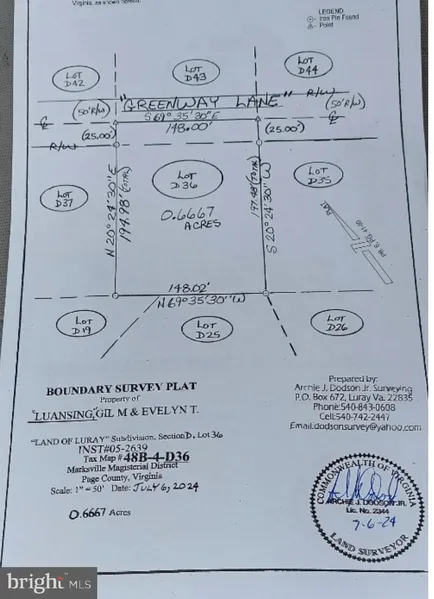 Virginia, as shown hereon.
LEGEND
Iron Pin Found
Point
LOT D42
LOT D43
LOT D44
(50' R/W)
"GREENWAY LANE"
R/W
(50' R/W)
S 69° 35' 30" E
148.00'
(25.00')
(25.00')
R/W
LOT D37
LOT D36
LOT D35
N 20° 24' 30" E
194.98' (TOTAL)
0.6667
ACRES
S 20° 24' 30" W
197.48' (TOTAL)
148.02'
N 69° 35' 30" W
LOT D19
LOT D25
LOT D26
BOUNDARY SURVEY PLAT
Property of
LUANSING, GIL M & EVELYN T.
"LAND OF LURAY" Subdivision, Section D, Lot 36
INST#05-2639
Tax Map # 48B-4-D36
Marksville Magisterial District
Page County, Virginia
Scale: 1" = 50' Date: JULY 6, 2024
0.6667 Acres
Prepared by:
Archie J. Dodson Jr. Surveying
P.O. Box 672, Luray Va. 22835
Phone:540-843-0608
Cell:540-742-2447
Email:dodsonsurvey@yahoo.com
COMMONWEALTH OF VIRGINIA
ARCHIE J. DODSON JR.
Lic. No. 2344
7-6-24
LAND SURVEYOR
bright MLS